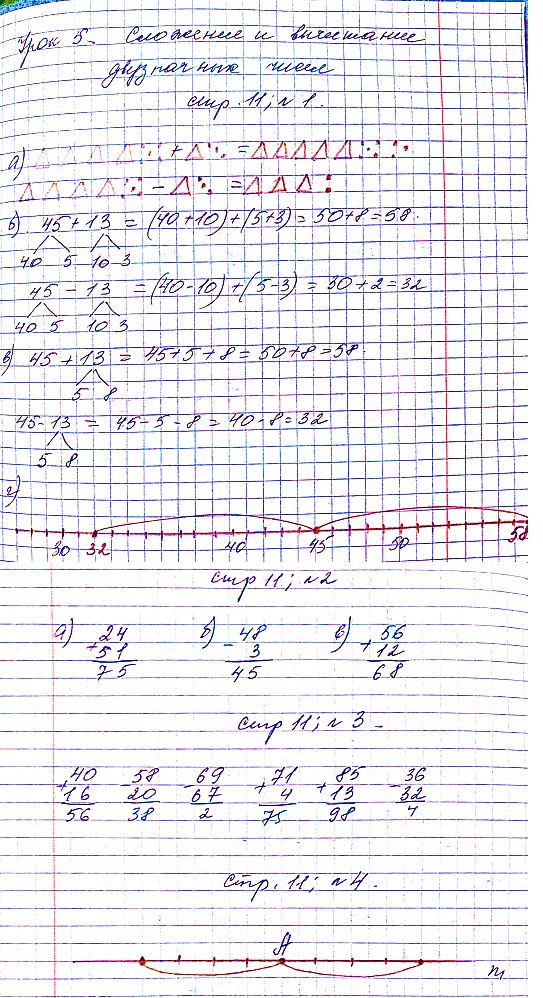 Урок 5. Сложение и вычитание
двузначных чисел
стр. 11; № 1.
а) + =
- =
б) 45 + 13 = (40+10)+(5+3) = 50+8=58.
40 5 10 3
45 - 13 = (40-10)+(5-3) = 30+2=32
40 5 10 3
в) 45 + 13 = 45+5+8=50+8=58.
5 8
45-13 = 45-5-8=40-8=32
5 8
г)
30 32 40 45 50 58
стр 11; № 2
а) 24 б) 48 в) 56
+ 51 - 3 + 12
75 45 68
стр 11; № 3 -
+ 40 - 58 - 69 + 71 + 85 - 36
16 20 67 4 13 32
56 38 2 75 98 4
Стр. 11; № 4.
A
m